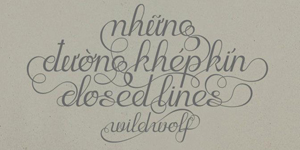 những
đường khép kín
closed lines
wildwolf